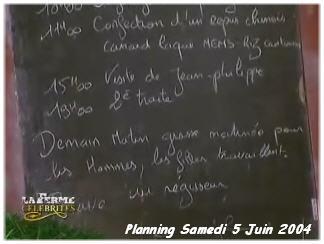 11H00 Confection d'un repas chinois.
canard laqué MEMS-Riz cantonnais
15H00 Visite de Jean-philippe
19H00 2è traite
Demain Matin grasse matinée pour
les Hommes, les filles travaillent.
LA FERME
CELEBRITES
Planning Samedi 5 Juin 2004